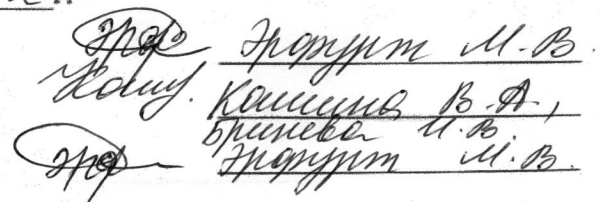 Эрф Эрфурт М.В.
Кашина В.А.,
Бринева И.В.
Эрф Эрфурт М.В.